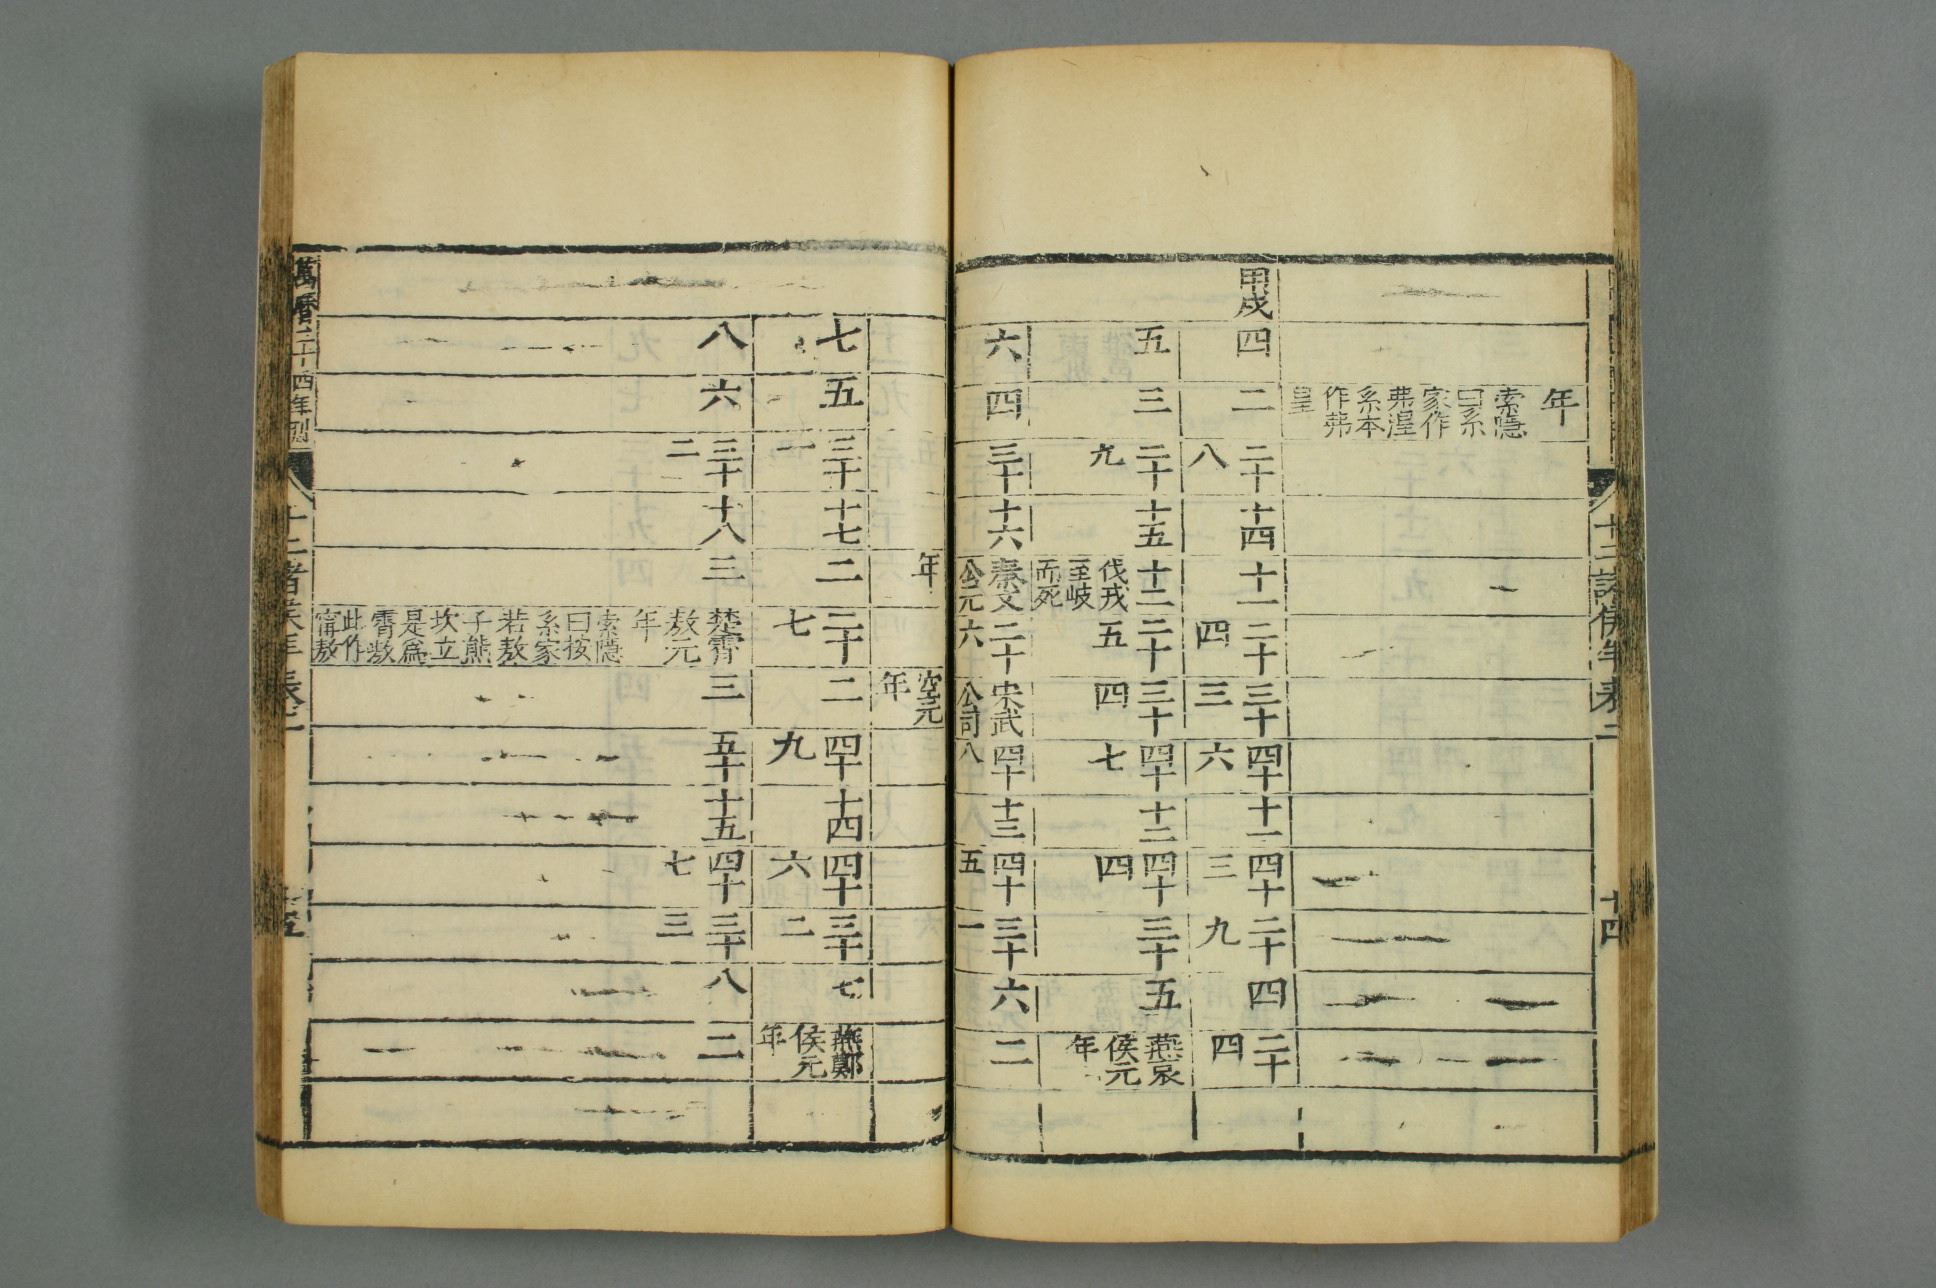 年
索隱
曰系
家作
弗湟
系本
作弗
皇
甲戌
四
二
二十
八
十四
十一
二十
四
三十
三
四十
六
十一
四十
三
二十
九
四
二十
四
五
三
二十
九
十五
十二
伐戎
至岐
而死
二十
五
三十
四
四十
七
十二
四十
四
三十
五
燕哀
侯元
年
六
四
三十
十六
秦文
公元
二十
六
宋武
公司
四十
八
十三
四十
五
三十
一
六
二
十二諸侯年表二
十四
年
空元
年
七
五
三十
一
十七
二
二十
七
二
四十
九
十四
四十
六
三十
二
七
燕鄭
侯元
年
八
六
三十
二
十八
三
楚霄
敖元
年
索隱
曰按
系家
若敖
子熊
坎立
是爲
霄敖
此作
甯敖
三
五十
十五
四十
七
三十
三
八
二
萬曆二十四年刊
十二諸侯年表二
十五